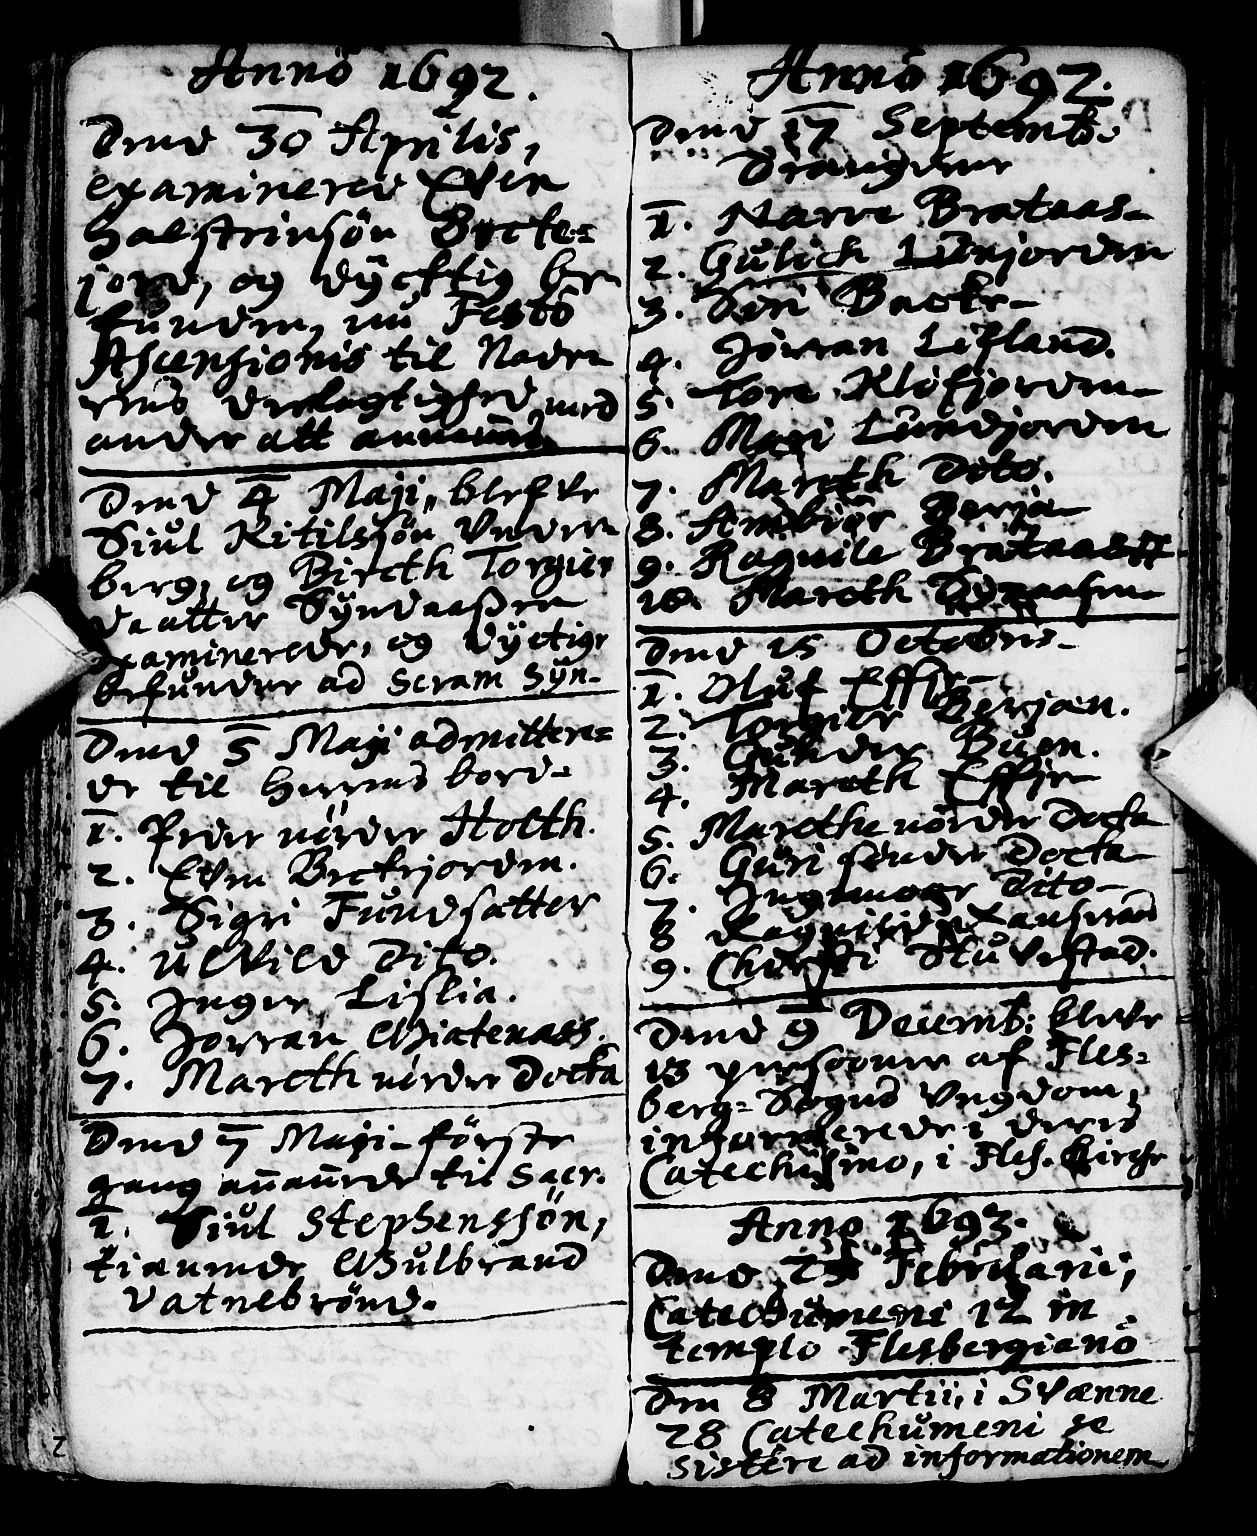 Anno 1692.
Dend 30 Aprilis,
examinered Efven
Halstensön Becke=
jord, og dÿcktig be
funden, nu Festo
Ascensionis til Nadve
rens delagtighed med
andre att annamme
Dend 4 Maji, blefve
Siul Kitilssön Under
berg, og Bireth Torgies
daatter Sÿndaaßen
examinerede, og dÿctige
befunder ad Seram Sÿn.
Dend 5 Maji admittere=
de til Herrens bord
1. Peder nörder Holth.
2. Efven Beckjorden.
3. Sigri Fundsatter
4. Ulvild Dito.
5. Inger Lislia.
6. Jorran
7. Mareth nörder Docka
Dend 7 Maji förste
gang annamede til Sacr.
1. Siul Stephenssön,
tienende Gulbrand
Vatnebrönd.
Anno 1692.
Dend 17 Septemb.
Drengene
1. Narve Brataas
2. Gulich Lienjorden
3. Siri Backe
4. Jörran Lifland.
5. Tore Klöfjorden
6. Mari Lundjorden
7. Mareth Dito.
8. Ambiör Berja
9. Ragnile Brataas
10. Mareth
Dend 15 Octobris
1. Oluf Effje
2. Torgier Berjan.
3. Gunder Buen.
4. Mareth Effje
5. Marethe nörder Docka
6. Guri sönder Docka
7. Dito
8
9. Christi Stuvestad.
Dend 9 Decemb: bleve
13 persooner af Fles=
berg= Sogns Ungdom,
informerede i deris
Catechismo, i Fles. Kirche
Anno 1693.
Dend 25 Februarii,
Catechumeni 12 in
templo Flesbergianö
Den 8 Martii, i Svænne
28 Catechumeni se
sistere ad informationem